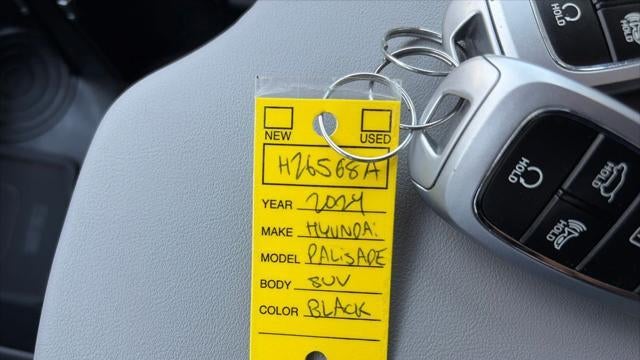 NEW USED
H26568A
YEAR 2024
MAKE HYUNDAi
MODEL PALiSADE
BODY SUV
COLOR BLACK
HOLD
HOLD
HOLD